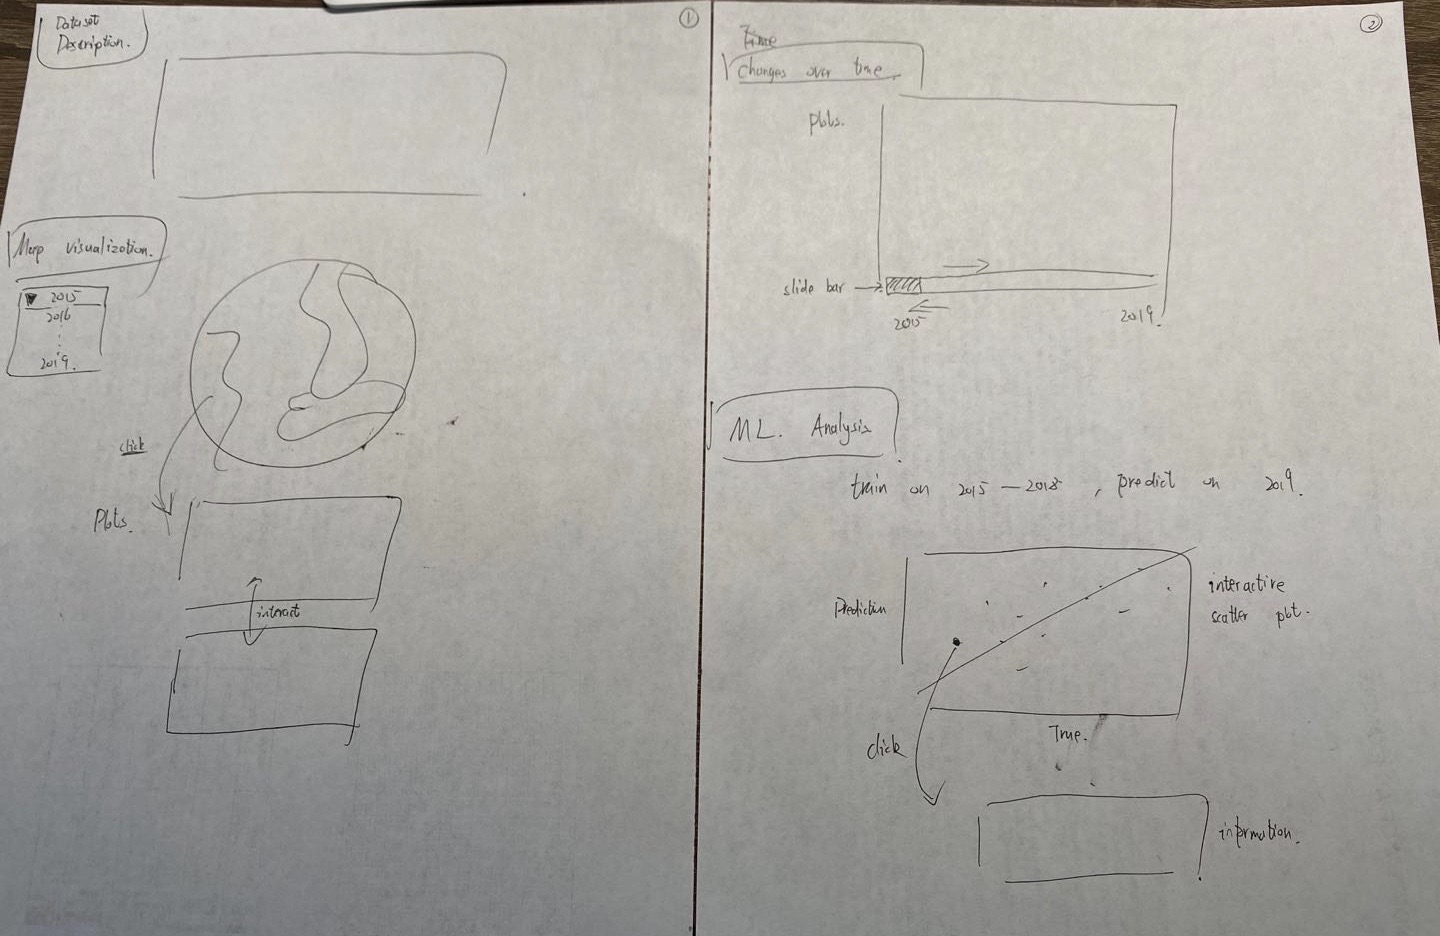 1
Dataset
Description.
Map visualization.
2015
2016
2019.
click
Plots.
interact
2
Time
Changes over time.
plots.
slide bar
2015
2019.
ML. Analysis
train on 2015 — 2018, predict on 2019.
Prediction
interactive
scatter plot.
True.
click
information.